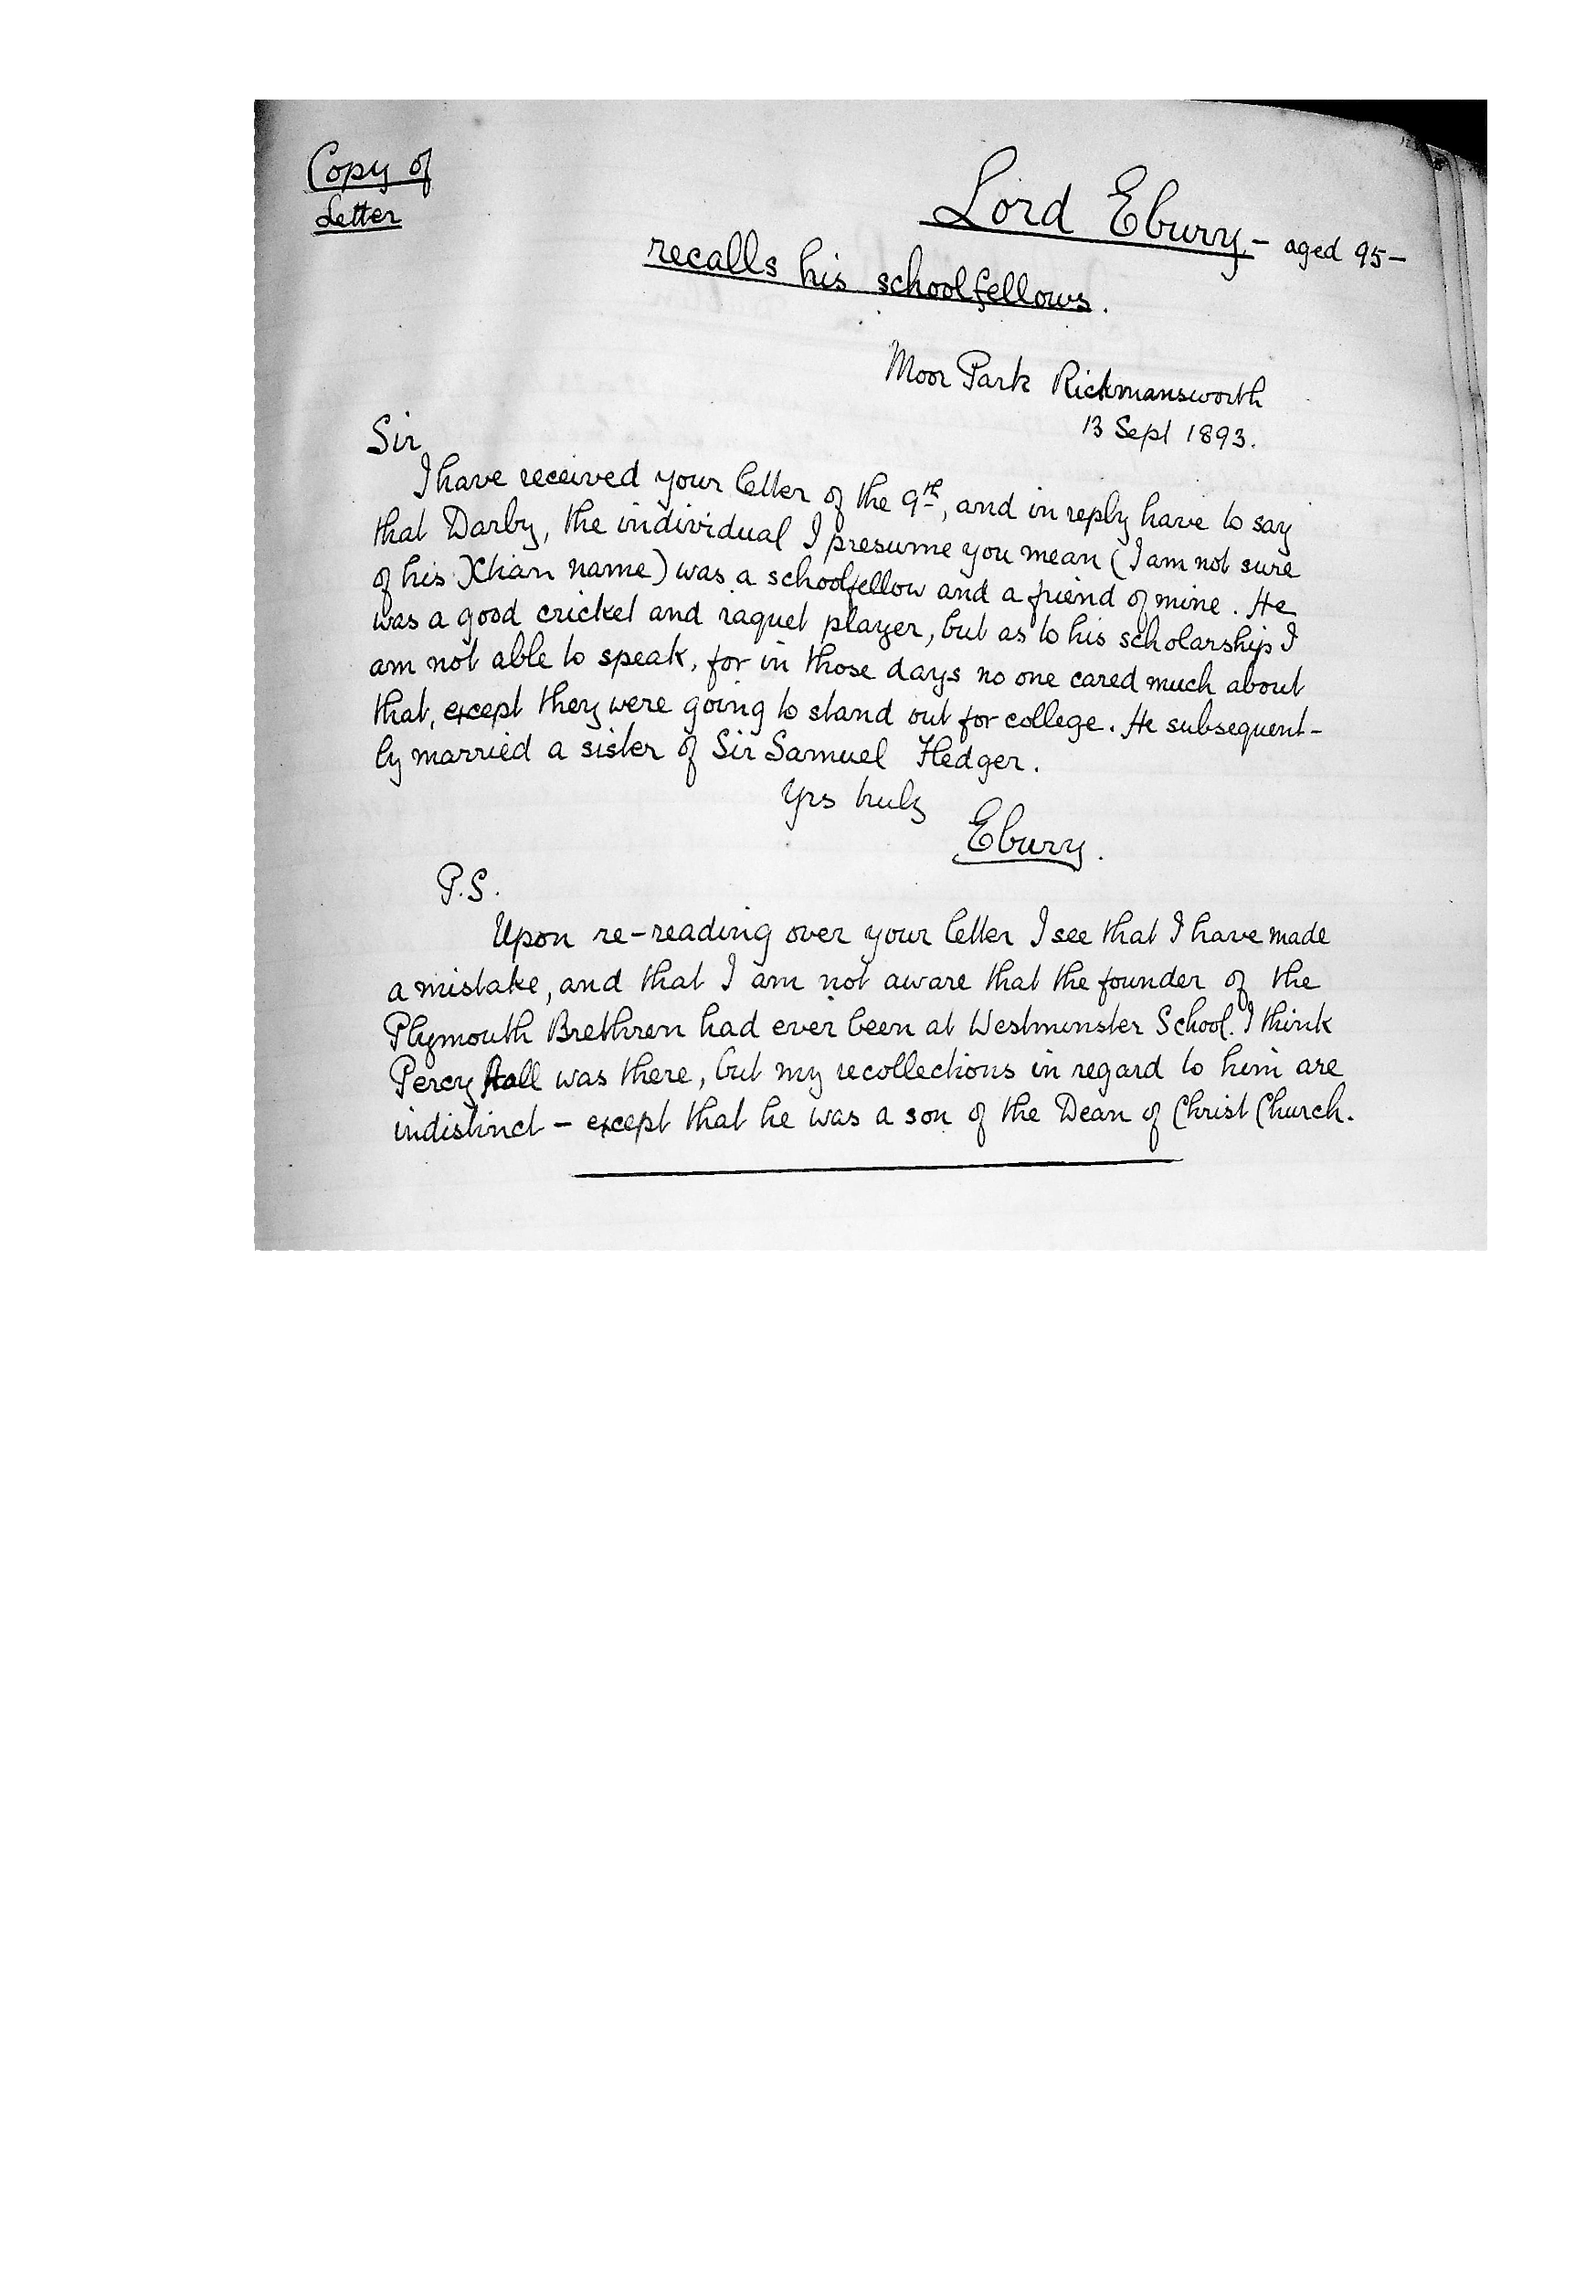 Copy of
Letter
Lord Ebury, – aged 95 –
recalls his schoolfellows.
Moor Park Rickmansworth
13 Sept 1893.
Sir
I have received your letter of the 9th, and in reply have to say
that Darby, the individual I presume you mean (I am not sure
of his Xtian name) was a schoolfellow and a friend of mine. He
was a good cricket and raquet player, but as to his scholarship I
am not able to speak, for in those days no one cared much about
that, except they were going to stand out for college. He subsequent-
ly married a sister of Sir Samuel Hedger.
Yrs truly
Ebury.
P.S.
Upon re-reading over your letter I see that I have made
a mistake, and that I am not aware that the founder of the
Plymouth Brethren had ever been at Westminster School. I think
Percy Hall was there, but my recollections in regard to him are
indistinct – except that he was a son of the Dean of Christ Church.